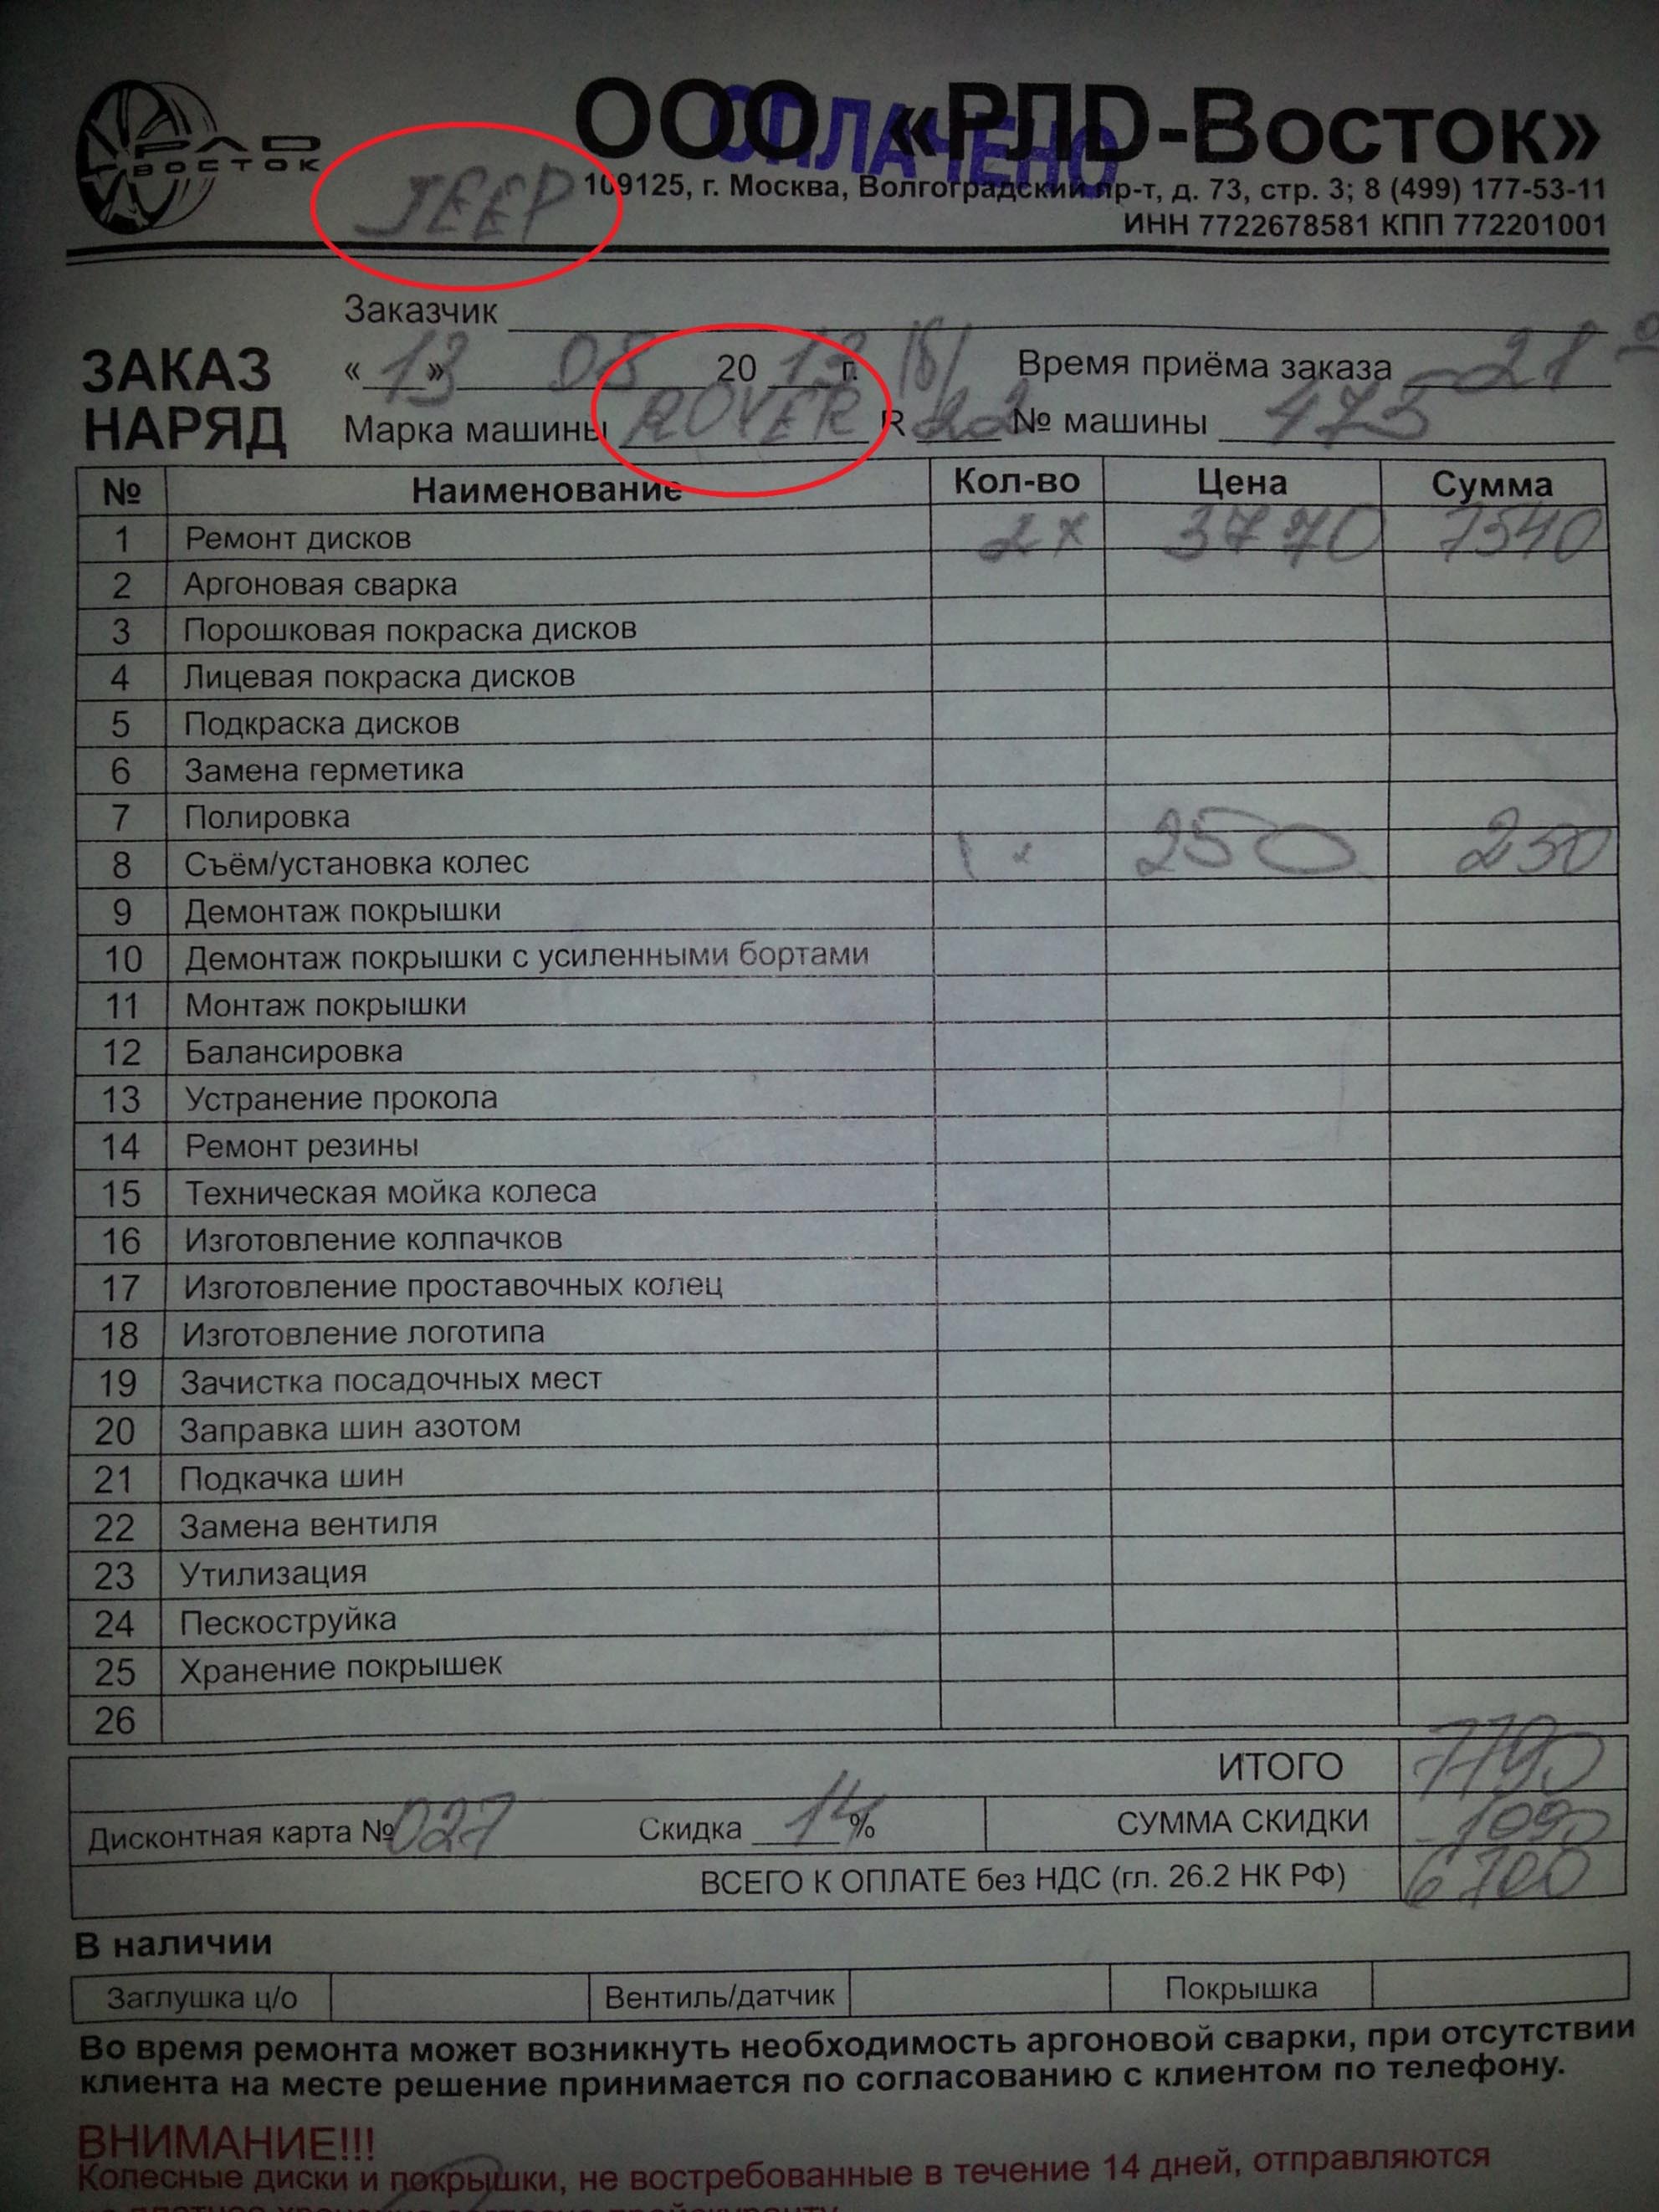 РЛD
ВОСТОК
ООО «РЛD-Восток»
ОПЛАЧЕНО
109125, г. Москва, Волгоградский пр-т, д. 73, стр. 3; 8 (499) 177-53-11
ИНН 7722678581 КПП 772201001
JEEP
Заказчик
ЗАКАЗ НАРЯД
«13» 08 2013 г. Время приёма заказа 21 0
Марка машины ROVER R 22 № машины 473
№ Наименование Кол-во Цена Сумма
1 Ремонт дисков 2x 3770 7540
2 Аргоновая сварка
3 Порошковая покраска дисков
4 Лицевая покраска дисков
5 Подкраска дисков
6 Замена герметика
7 Полировка
8 Съём/установка колес 1 x 250 250
9 Демонтаж покрышки
10 Демонтаж покрышки с усиленными бортами
11 Монтаж покрышки
12 Балансировка
13 Устранение прокола
14 Ремонт резины
15 Техническая мойка колеса
16 Изготовление колпачков
17 Изготовление проставочных колец
18 Изготовление логотипа
19 Зачистка посадочных мест
20 Заправка шин азотом
21 Подкачка шин
22 Замена вентиля
23 Утилизация
24 Пескоструйка
25 Хранение покрышек
26
ИТОГО 7790
Дисконтная карта № 027 Скидка 14 % СУММА СКИДКИ -1090
ВСЕГО К ОПЛАТЕ без НДС (гл. 26.2 НК РФ) 6700
В наличии
Заглушка ц/о Вентиль/датчик Покрышка
Во время ремонта может возникнуть необходимость аргоновой сварки, при отсутствии
клиента на месте решение принимается по согласованию с клиентом по телефону.
ВНИМАНИЕ!!!
Колесные диски и покрышки, не востребованные в течение 14 дней, отправляются
на платное хранение согласно прейскуранту